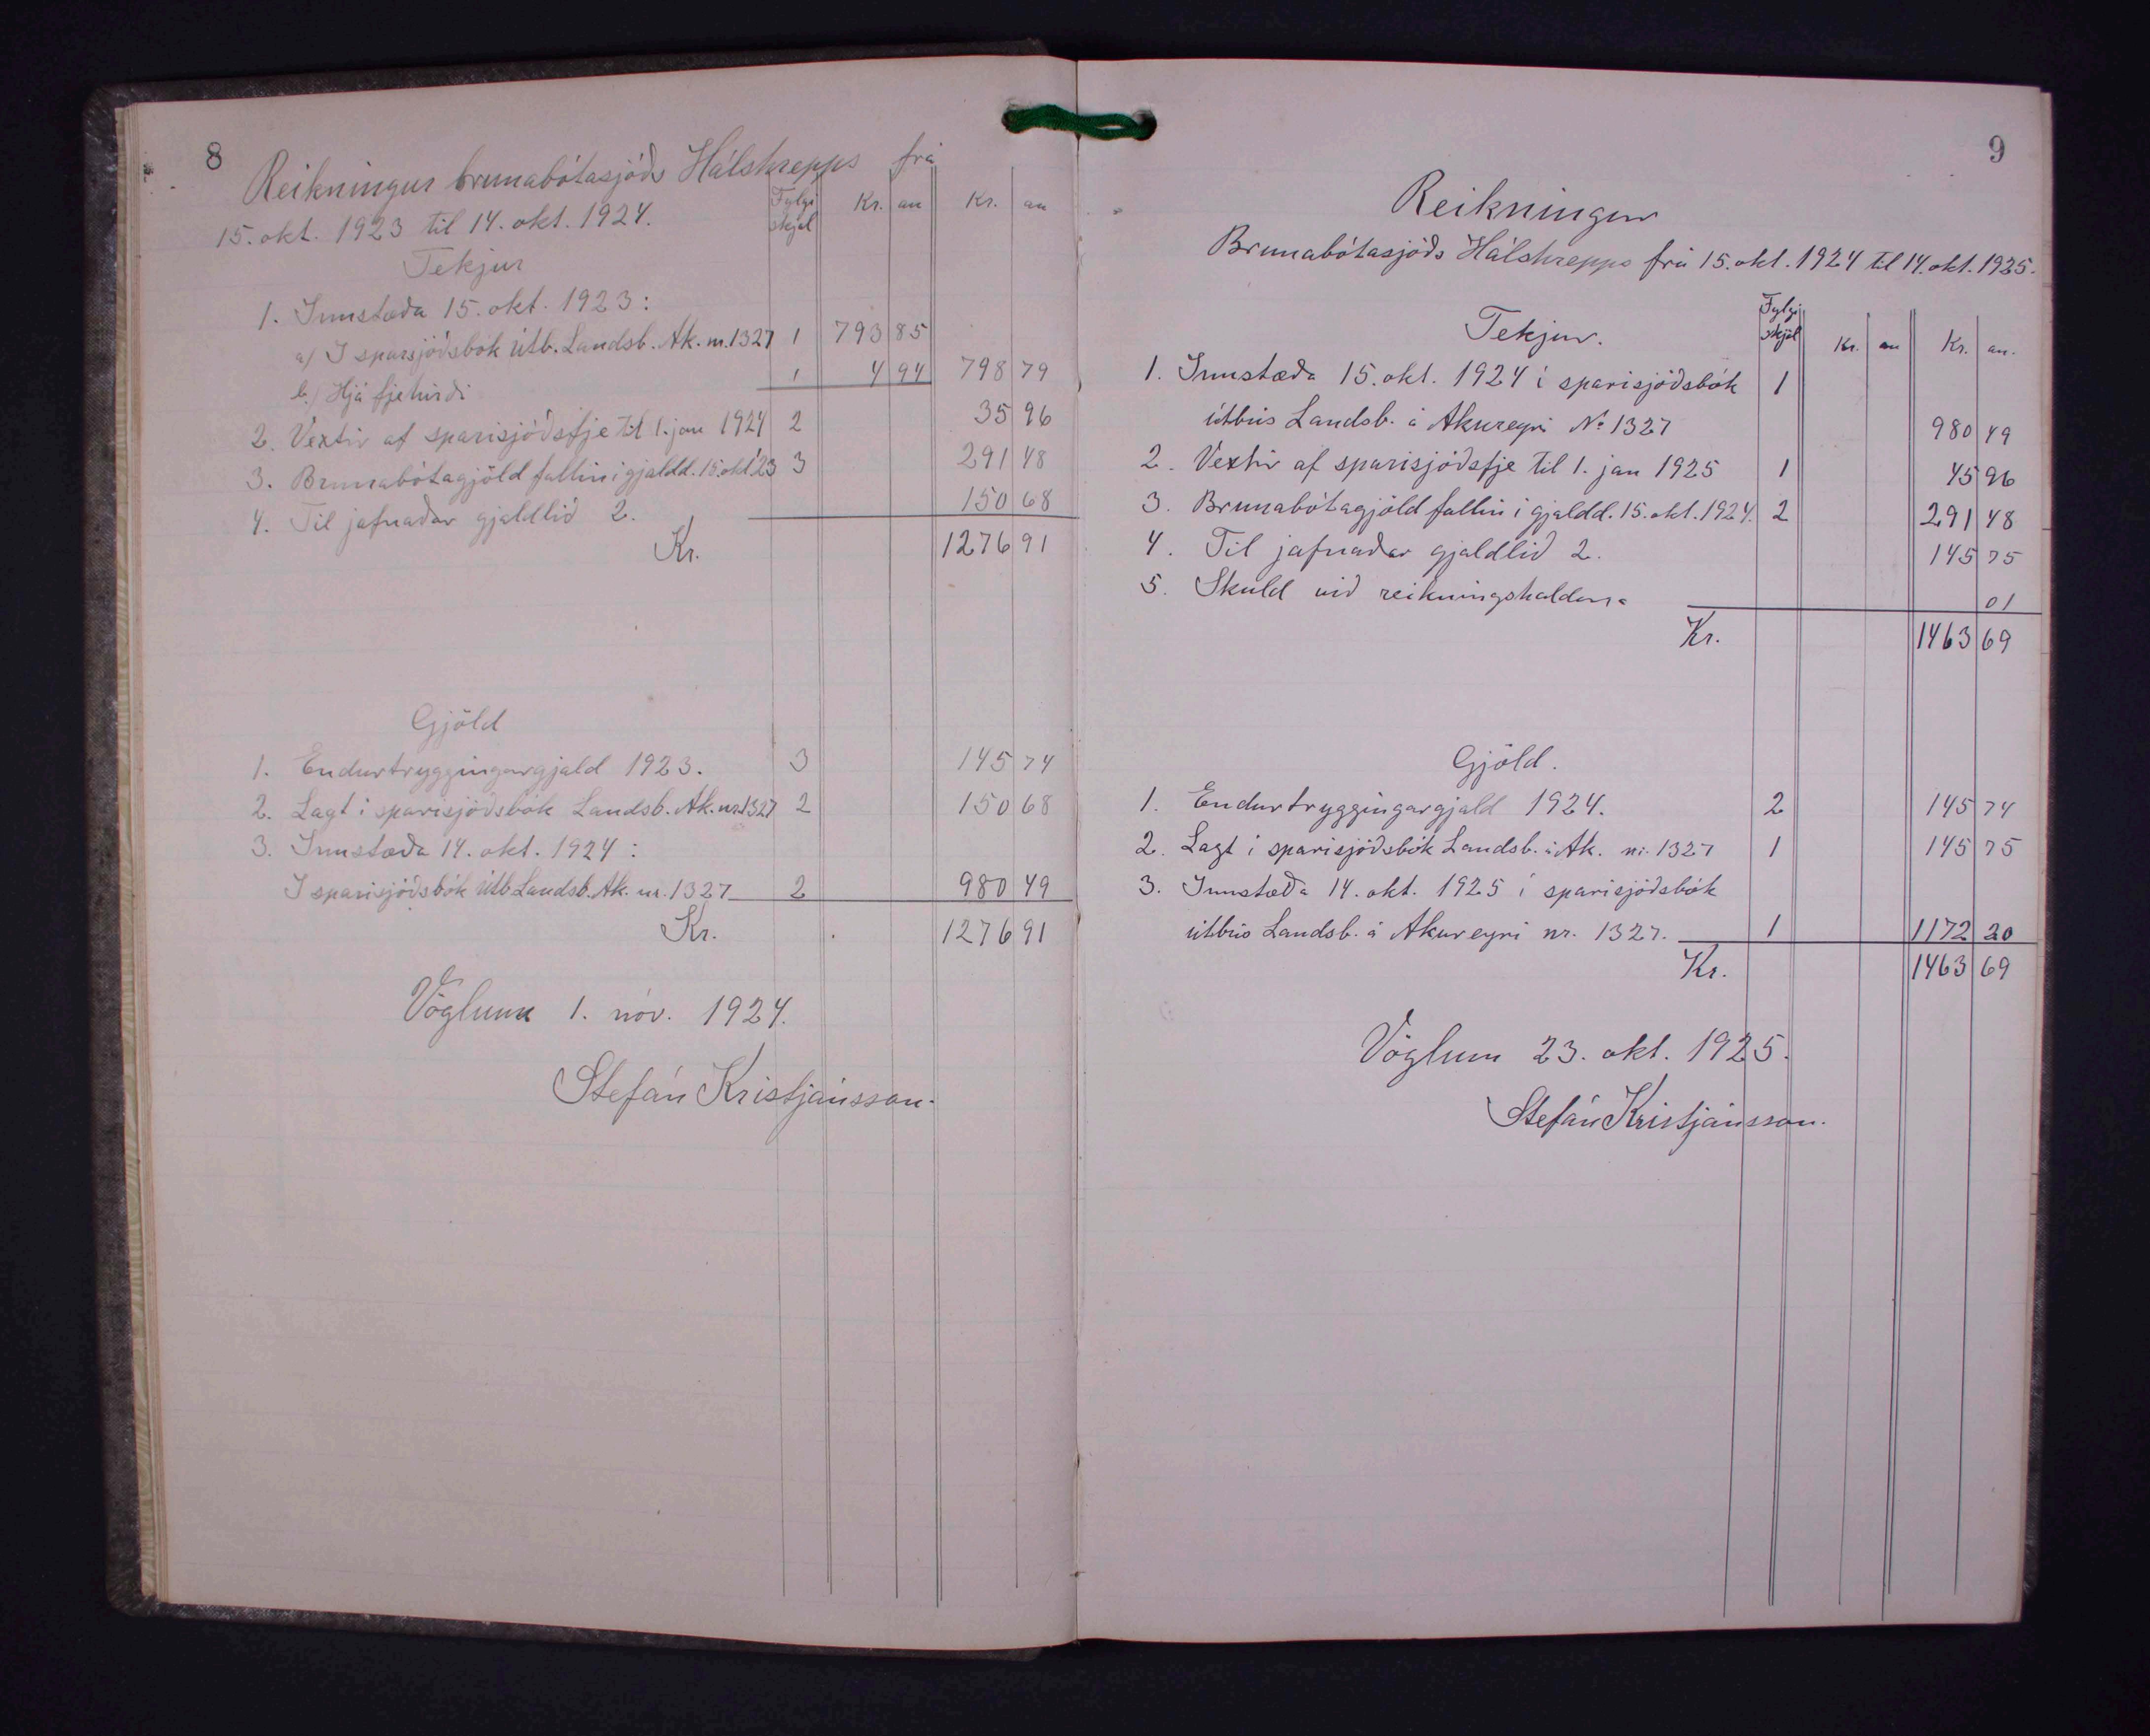 8
Reikningur brunabótasjóðs Hálshrepps frá
15. okt. 1923 til 14. okt. 1924.
Fylgi skjöl Kr. au Kr. au
Tekjur
1. Innstæða 15. okt. 1923:
a) I sparisjóðsbók útb. Landsb. Ak. nr. 1327 1 793 85
b.) Hjá fjehirði 1 4 94 798 79
2. Vextir af sparisjóðsfje til 1. jan 1924 2 35 96
3. Brunabótagjöld fallin i gjaldd. 15. okt '23 3 291 48
4. Til jafnaðar gjaldlið 2. 150 68
Kr. 1276 91
Gjöld
1. Endurtryggingargjald 1923. 3 145 74
2. Lagt i sparisjóðsbók Landsb. Ak. nr. 1327 2 150 68
3. Innstæða 14. okt. 1924:
I sparisjóðsbók útb Landsb. Ak. nr. 1327 2 980 49
Kr. 1276 91
Vöglum 1. nóv. 1924.
Stefán Kristjánsson.
9
Reikningur
Brunabótasjóðs Hálshrepps frá 15. okt. 1924 til 14. okt. 1925.
Tekjur. Fylgi skjöl Kr. au Kr. au.
1. Innstæða 15. okt. 1924 í sparisjóðsbók 1
útbús Landsb. á Akureyri No 1327 980 49
2. Vextir af sparisjóðsfje til 1. jan 1925 1 45 96
3. Brunabótagjöld fallin i gjaldd. 15. okt. 1924. 2 291 48
4. Til jafnaðar gjaldlið 2. 145 75
5. Skuld við reikningshaldara 01
Kr. 1463 69
Gjöld.
1. Endurtryggingargjald 1924. 2 145 74
2. Lagt i sparisjóðsbók Landsb. á Ak. nr. 1327 1 145 75
3. Innstæða 14. okt. 1925 í sparisjóðsbók
útbús Landsb. á Akureyri nr. 1327. 1 1172 20
Kr. 1463 69
Vöglum 23. okt. 1925.
Stefán Kristjánsson.